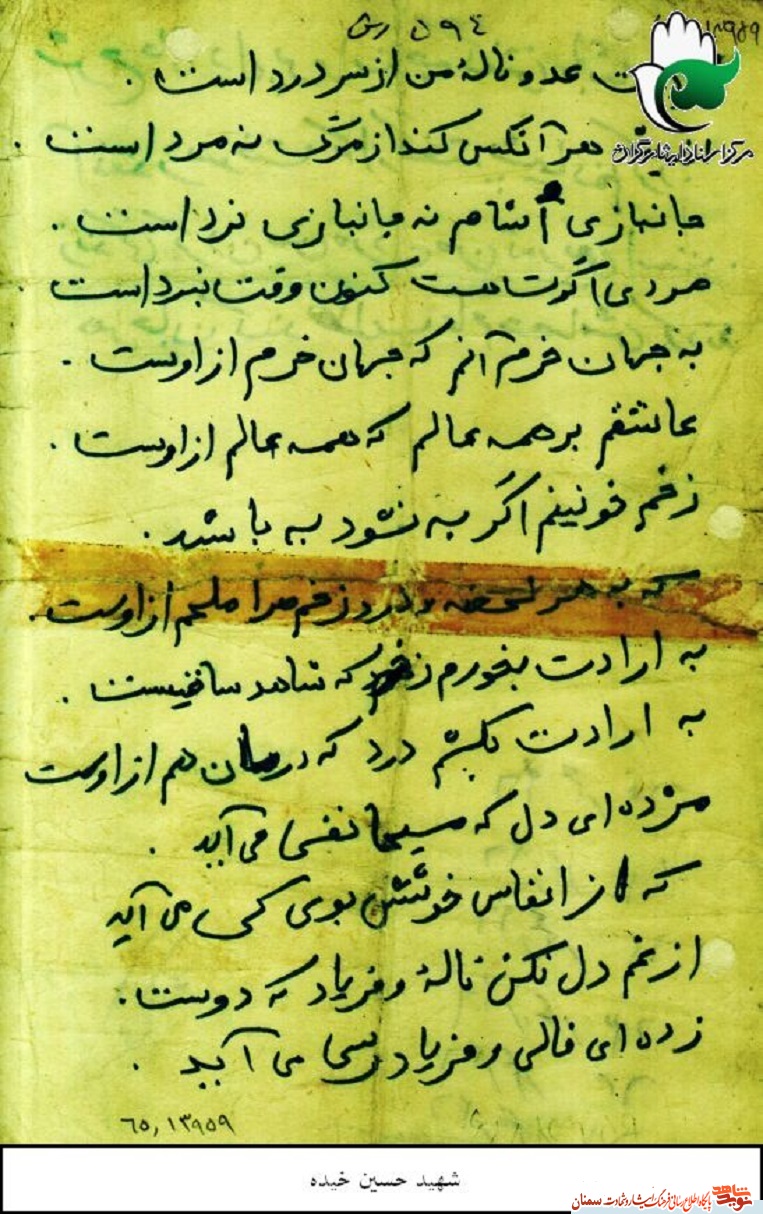 ۵۹٤
ت عدو نالهٔ من از سر درد است .
هر آنکس کند از مرگ نه مرد است .
مرکز اسناد ایثارگران
جانبازی آشام نه جانبازی نرد است .
مردی اگرت هست کنون وقت نبرد است .
به جهان خرم آنم که جهان خرم از اوست .
عاشقم بر همه عالم که همه عالم از اوست .
زخم خونینم اگر به نشود به باشد .
که به هر لحضه و درد زخم مرا ملحم از اوست .
به ارادت بخورم زهر که شاهد ساقیست .
به ارادت بکشم درد که درمان هم از اوست
مژده ای دل که مسیحا نفسی می آید .
که از انفاس خوشش بوی کسی می آید
از غم دل نکن نالهٔ و فریاد که دوست .
زده ای فالی و فریادرسی می آید .
٦٥,١٣٩٥٩
شهید حسین خیده
نوید شاهد پایگاه اطلاع رسانی فرهنگ ایثار و شهادت سمنان